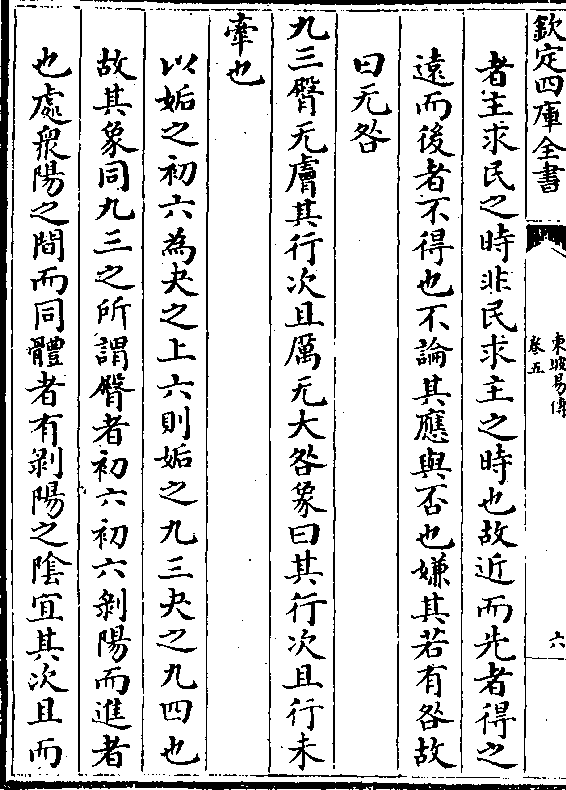 欽定四庫全書
東坡易傳
卷五
六
者主求民之時非民求主之時也故近而先者得之
遠而後者不得也不論其應與否也嫌其若有咎故
曰无咎
九三臀无膚其行次且厲无大咎象曰其行次且行未
牽也
以姤之初六為夬之上六則姤之九三夬之九四也
故其象同九三之所謂臀者初六初六剝陽而進者
也處衆陽之間而同體者有剝陽之隂宜其次且而